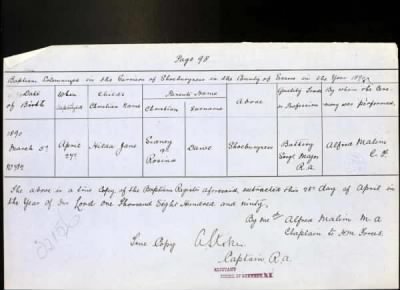 Page 98
Baptism Solemnized in the Garrison of Shoeburyness in the County of Essex in the Year 1890
Date of Birth
When baptized
Child's Christian Name
Parents Name
Christian
Surname
Abode
Quality Trade or Profession
By whom the Cere mony was performed
1890
March 5th
April 27
Hilda Jane
Sidney & Rosina
Dawe
Shoeburyness
Battery Sergt Major R.A.
Alfred Malim C.F.
The above is a true Copy of the Baptism Register aforesaid, extracted this 28th day of April in
the Year of Our Lord One Thousand Eight Hundred and ninety.
By me Alfred Malim M.A
Chaplain to H.M. Forces.
True Copy
Captain R.A.